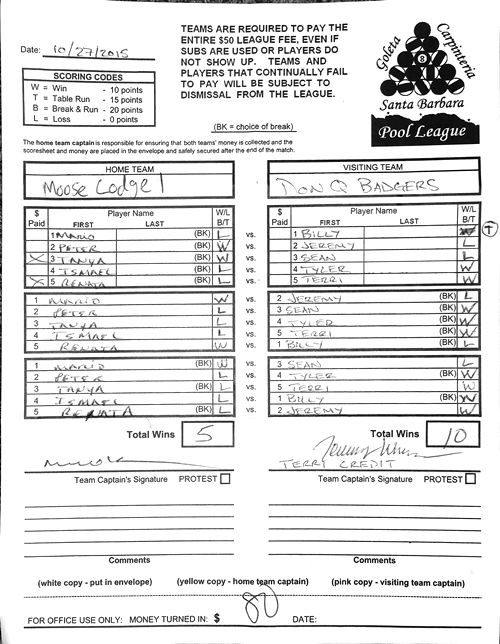 Date: 10/27/2015
SCORING CODES
W = Win - 10 points
T = Table Run - 15 points
B = Break & Run - 20 points
L = Loss - 0 points
TEAMS ARE REQUIRED TO PAY THE
ENTIRE $50 LEAGUE FEE, EVEN IF
SUBS ARE USED OR PLAYERS DO
NOT SHOW UP. TEAMS AND
PLAYERS THAT CONTINUALLY FAIL
TO PAY WILL BE SUBJECT TO
DISMISSAL FROM THE LEAGUE.
(BK = choice of break)
Goleta
Carpinteria
8
Santa Barbara
Pool League
The home team captain is responsible for ensuring that both teams' money is collected and the
scoresheet and money are placed in the envelope and safely secured after the end of the match.
HOME TEAM VISITING TEAM
Moose Lodge 1 DON Q BADGERS
$ Paid Player Name FIRST LAST W/L B/T $ Paid Player Name FIRST LAST W/L B/T
1 MARIO (BK) L vs. 1 BILLY T
2 PETER W vs. 2 JEREMY L
X 3 TANYA (BK) W vs. 3 SEAN L
4 ISMAEL L vs. 4 TYLER W
X 5 RENATA (BK) L vs. 5 TERRI W
1 MARIO W vs. 2 JEREMY (BK) L
2 PETER L vs. 3 SEAN (BK) W
3 TANYA L vs. 4 TYLER (BK) W
4 ISMAEL L vs. 5 TERRI (BK) W
5 RENATA W vs. 1 BILLY (BK) L
1 MARIO (BK) W vs. 3 SEAN L
2 PETER L vs. 4 TYLER (BK) W
3 TANYA (BK) L vs. 5 TERRI W
4 ISMAEL L vs. 1 BILLY (BK) W
5 RENATA (BK) L vs. 2 JEREMY W
Total Wins 5 Total Wins 10
TERRI CREDIT
Team Captain's Signature PROTEST Team Captain's Signature PROTEST
Comments Comments
(white copy - put in envelope) (yellow copy - home team captain) (pink copy - visiting team captain)
FOR OFFICE USE ONLY: MONEY TURNED IN: $ 80 DATE: